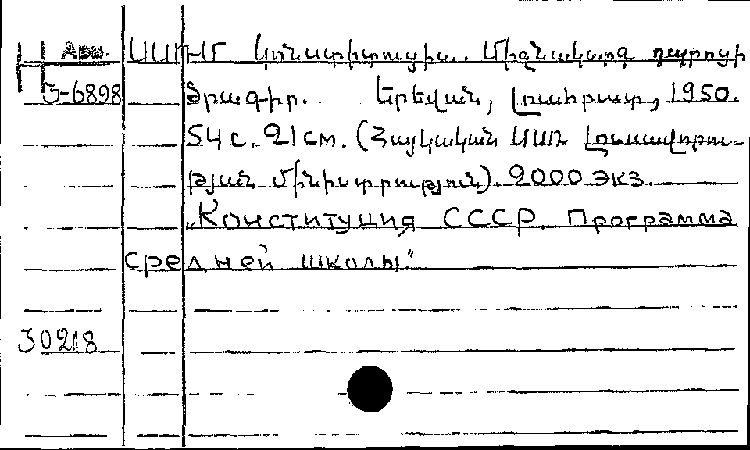 Арм. ՍՍՌՄ Կոնստիտուցիա. Միջնակարգ դպրոցի
5-6898 Ծրագիր. Երեվան, Լուսհրատ, 1950.
54 с. 21 см. (Հայկական ՍՍՌ Լուսավորու-
թյան Մինիստրություն). 2000 экз.
„Конституция СССР. Программа
средней школы"
30218